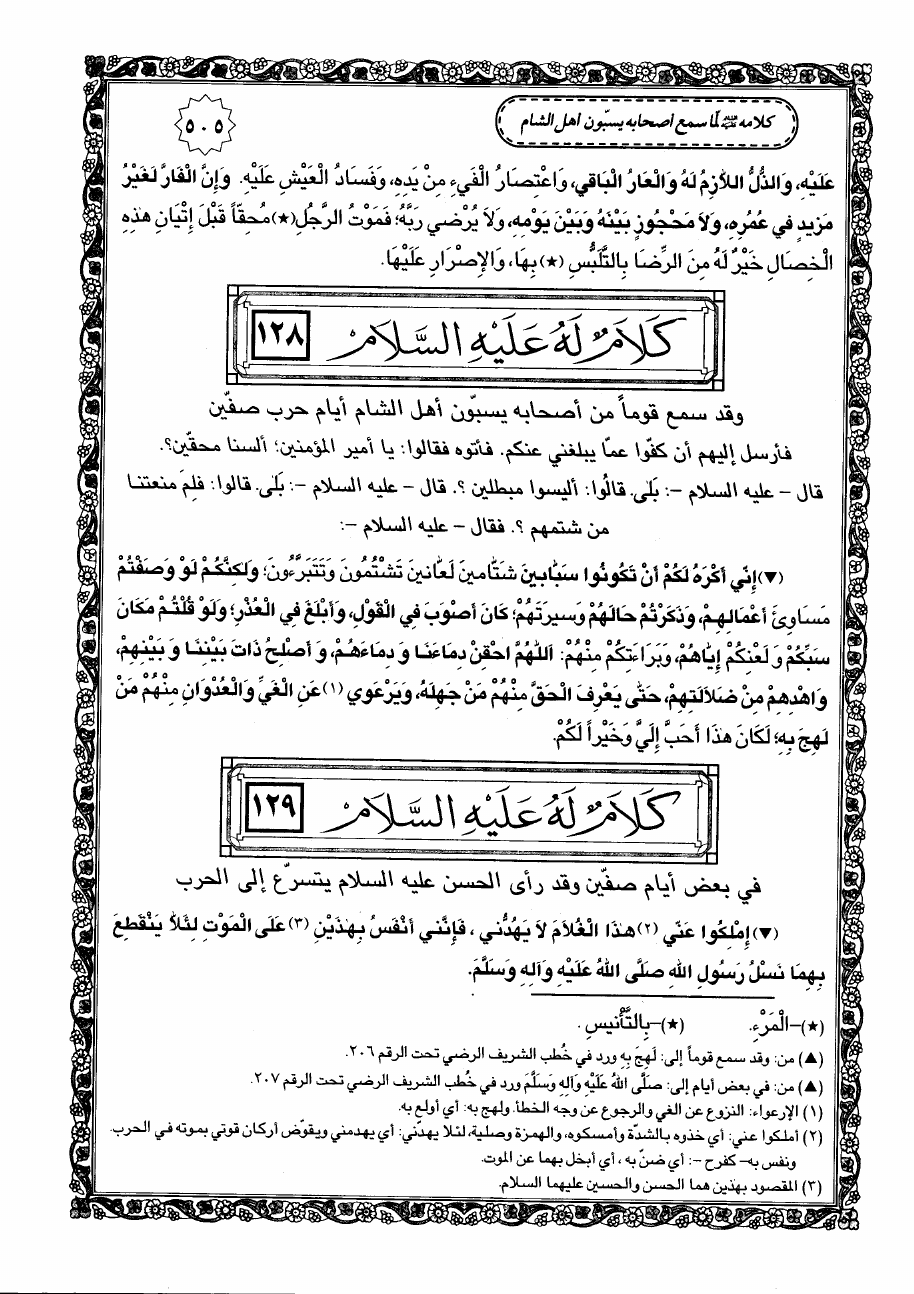 كلامه عليه السلام لمّا سمع اصحابه يسبّون اهل الشام
٥٠٥
عَلَيْهِ، وَالذُّلُّ اللاَّزِمُ لَهُ وَالْعَارُ الْبَاقي، وَاعْتِصَارُ الْفَيْءِ مِنْ يَدِهِ، وَفَسَادُ الْعَيْشِ عَلَيْهِ. وَإِنَّ الْفَارَّ لَغَيْرُ
مَزيدٍ في عُمُرِهِ، وَلاَ مَحْجُوزٍ بَيْنَهُ وَبَيْنَ يَوْمِهِ، وَلاَ يُرْضي رَبَّهُ؛ فَمَوْتُ الرَّجُلِ(★)مُحِقّاً قَبْلَ إِتْيَانِ هٰذِهِ
الْخِصَالِ خَيْرٌ لَهُ مِنَ الرِّضَا بِالتَّلَبُّسِ (★)بِهَا، وَالإِصْرَارِ عَلَيْهَا.
كَلَامٌ لَهُ عَلَيْهِ السَّلَامُ
١٢٨
وقد سمع قوماً من أصحابه يسبّون أهل الشام أيام حرب صفّين
فأرسل إليهم أن كفّوا عمّا يبلغني عنكم. فأتوه فقالوا: يا أمير المؤمنين؛ ألسنا محقّين؟.
قال – عليه السلام –: بَلٰى. قالُوا: أليسوا مبطلين ؟. قال – عليه السلام –: بَلٰى. قالوا: فلِمَ منعتنا
من شتمهم ؟. فقال – عليه السلام –:
(▼)إِنّي أَكْرَهُ لَكُمْ أَنْ تَكُونُوا سَبّابينَ شَتّامينَ لَعّانينَ تَشْتُمُونَ وَتَتَبَرَّءُونَ؛ وَلٰكِنَّكُمْ لَوْ وَصَفْتُمْ
مَسَاوِئَ أَعْمَالِهِمْ، وَذَكَرْتُمْ حَالَهُمْ وَسيرَتَهُمْ؛ كَانَ أَصْوَبَ فِي الْقَوْلِ، وَأَبْلَغَ فِي الْعُذْرِ؛ وَلَوْ قُلْتُمْ مَكَانَ
سَبِّكُمْ وَ لَعْنِكُمْ إِيَّاهُمْ، وَبَرَاءَتِكُمْ مِنْهُمْ: اَللّٰهُمَّ احْقِنْ دِمَاءَنَا وَ دِمَاءَهُمْ، وَ أَصْلِحْ ذَاتَ بَيْنِنَا وَ بَيْنِهِمْ،
وَاهْدِهِمْ مِنْ ضَلاَلَتِهِمْ، حَتّٰى يَعْرِفَ الْحَقَّ مِنْهُمْ مَنْ جَهِلَهُ، وَيَرْعَوِي (١) عَنِ الْغَيِّ وَالْعُدْوَانِ مِنْهُمْ مَنْ
لَهِجَ بِهِ؛ لَكَانَ هٰذَا أَحَبَّ إِلَيَّ وَخَيْراً لَكُمْ.
كَلَامٌ لَهُ عَلَيْهِ السَّلَامُ
١٢٩
في بعض أيام صفّين وقد رأى الحسن عليه السلام يتسرّع إلى الحرب
(▼)إِمْلِكُوا عَنّي (٢) هٰذَا الْغُلاَمَ لاَ يَهُدُّني ، فَإِنَّني أَنْفَسُ بِهٰذَيْنِ (٣) عَلَى الْمَوْتِ لِئَلاَّ يَنْقَطِعَ
بِهِمَا نَسْلُ رَسُولِ اللهِ صَلَّى اللهُ عَلَيْهِ وَآلِهِ وَسَلَّمَ.
(★)–الْمَرْءِ. (★)–بِالتَّأْنيسِ .
(▲) من: وقد سمع قوماً إلى: لَهِجَ بِهِ ورد في خُطب الشريف الرضي تحت الرقم ٢٠٦.
(▲) من: في بعض أيام إلى: صَلَّى اللهُ عَلَيْهِ وَآلِهِ وَسَلَّمَ ورد في خُطب الشريف الرضي تحت الرقم ٢٠٧.
(١) الإرعواء: النزوع عن الغي والرجوع عن وجه الخطأ. ولهج به: أي أولع به.
(٢) أملكوا عني: أي خذوه بالشدّة وأمسكوه، والهمزة وصلية، لئلا يهدّني: أي يهدمني ويقوّض أركان قوتي بموته في الحرب.
ونفس به– كفرح –: أي ضنّ به ، أي أبخل بهما عن الموت.
(٣) المقصود بهذين هما الحسن والحسين عليهما السلام.